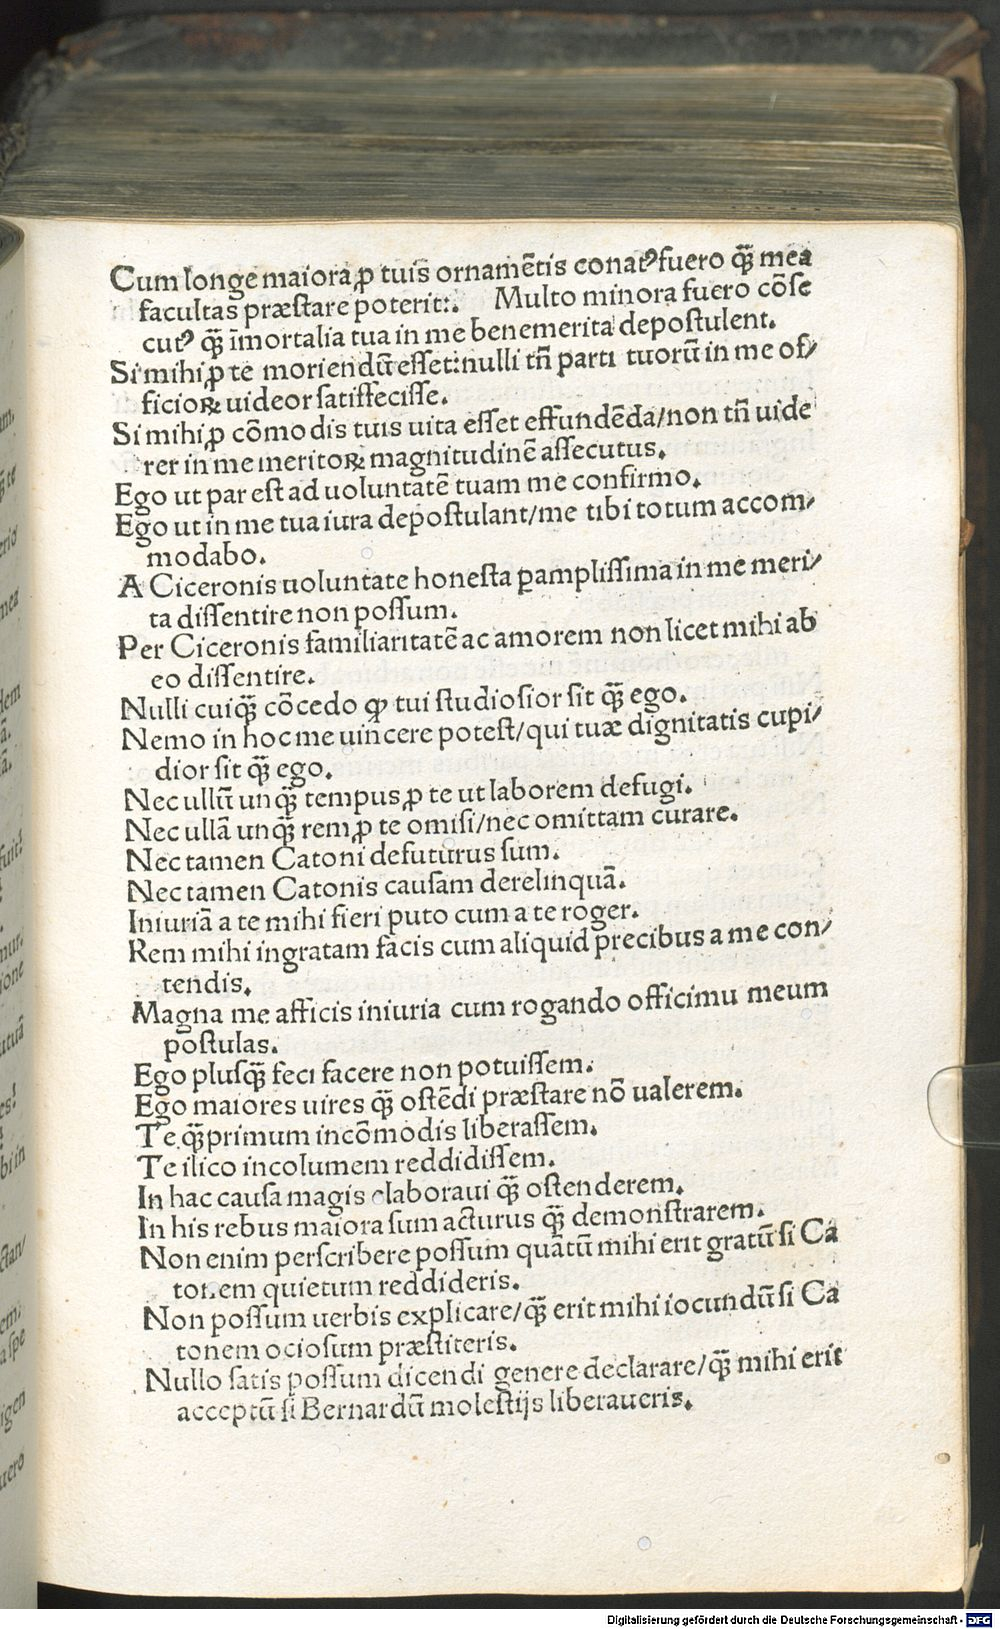 Cum longe maiora ꝓ tuis ornamētis conatꝰ fuero q̄̈ mea
facultas præſtare poterit:. Multo minora fuero cōſe
cutꝰ q̄̈ īmortalia tua in me benemerita depoſtulent.
Si mihi ꝓ te moriendū eſſet: nulli tn̄ parti tuorū in me of/
ficioꝝ uideor ſatiſfeciſſe.
Si mihi ꝓ cōmodis tuis uita eſſet effundēda/non tn̄ uide
rer in me meritoꝝ magnitudinē aſſecutus.
Ego ut par eſt ad uoluntatē tuam me confirmo.
Ego ut in me tua iura depoſtulant/me tibi totum accom/
modabo.
A Ciceronis uoluntate honeſta ꝑampliſſima in me meri/
ta diſſentire non poſſum.
Per Ciceronis familiaritatē ac amorem non licet mihi ab
eo diſſentire.
Nulli cuiq̄̈ cōcedo ꝙ tui ſtudioſior ſit q̄̈ ego.
Nemo in hoc me uincere poteſt/qui tuæ dignitatis cupi/
dior ſit q̄̈ ego.
Nec ullū unq̄̈ tempus ꝓ te ut laborem defugi.
Nec ullā unq̄̈ rem ꝓ te omiſi/nec omittam curare.
Nec tamen Catoni defuturus ſum.
Nec tamen Catonis cauſam derelinquā.
Iniuriā a te mihi fieri puto cum a te roger.
Rem mihi ingratam facis cum aliquid precibus a me con/
tendis.
Magna me afficis iniuria cum rogando officimu meum
poſtulas.
Ego pluſq̄̈ feci facere non potuiſſem.
Ego maiores uires q̄̈ oſtēdi præſtare nō ualerem.
Te q̄̈primum incōmodis liberaſſem.
Te ilico incolumem reddidiſſem.
In hac cauſa magis elaboraui q̄̈ oſtenderem.
In his rebus maiora ſum acturus q̄̈ demonſtrarem.
Non enim perſcribere poſſum quātū mihi erit gratū ſi Ca
tonem quietum reddideris.
Non poſſum uerbis explicare/q̄̈ erit mihi iocundū ſi Ca
tonem ocioſum præſtiteris.
Nullo ſatis poſſum dicendi genere declarare/q̄̈ mihi erit
acceptū ſi Bernardū moleſtijs liberaueris.
Digitalisierung gefördert durch die Deutsche Forschungsgemeinschaft - DFG